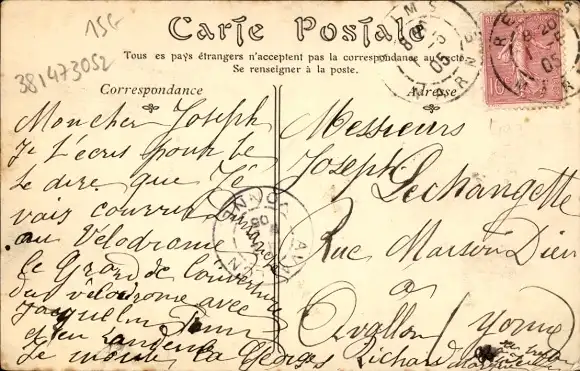 15G
381473052
Carte Postale
Tous les pays étrangers n'acceptent pas la correspondance au recto
Se renseigner à la poste.
Correspondance
Adresse
Mon cher Joseph
Je t'écris pour te
le dire que Je
vais courrir Dimanche
au Vélodrome
le Grand de Louverture
du vélodrome avec
Jacquelin
et en tandem
Le monte la Georges Richard
Messieurs
Joseph Lechangette
Rue Maison Dieu
à
Avallon Yonne